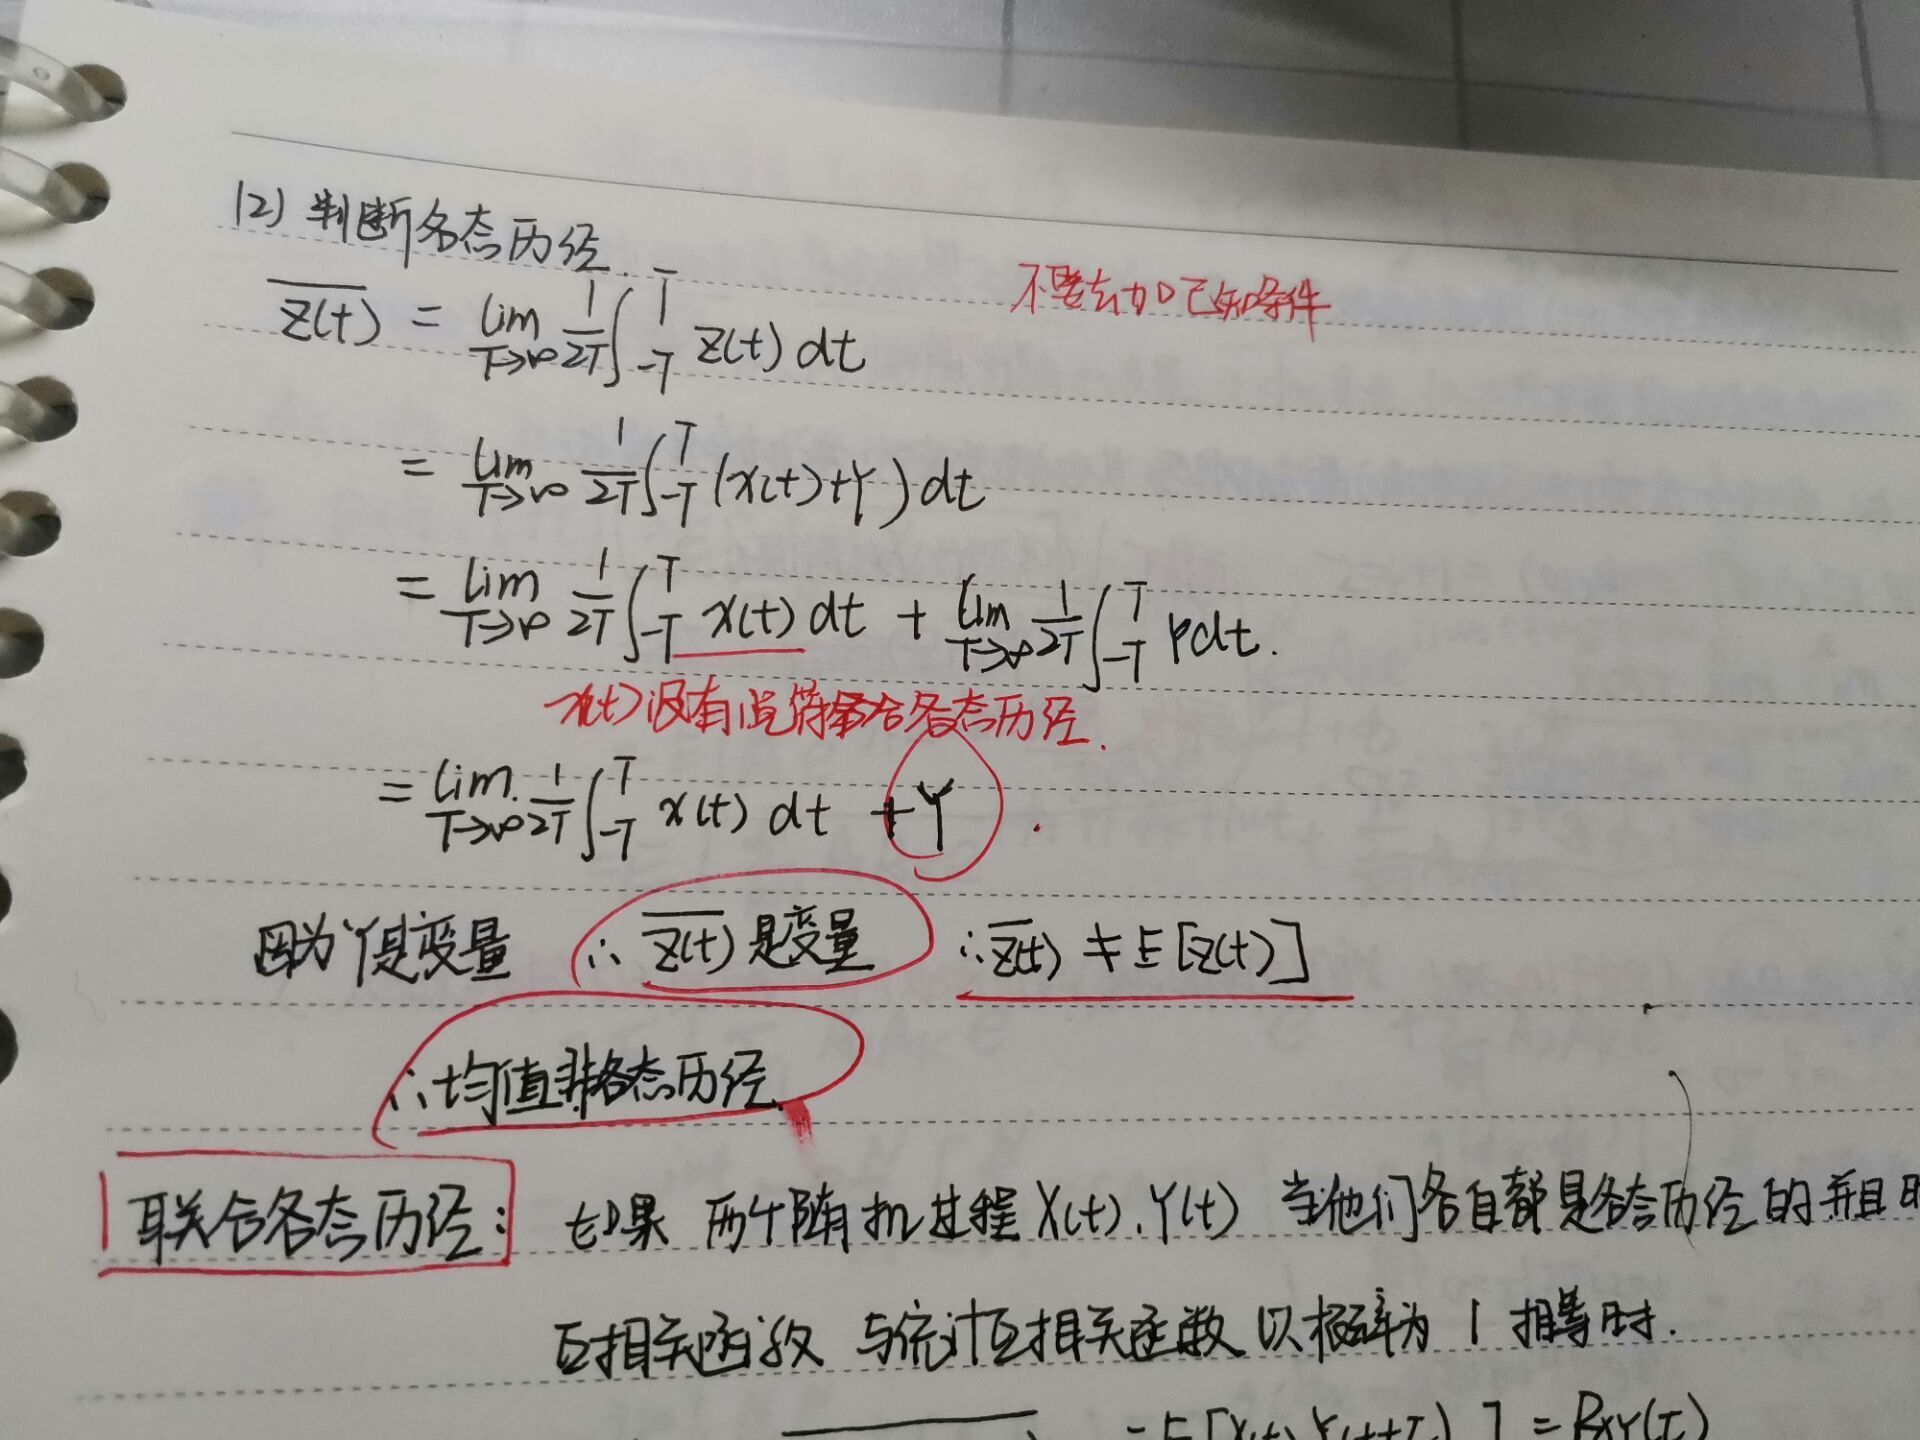 (2) 判断各态历经.
不要去加已知条件
\overline{Z(t)} = lim_{T→∞} \frac{1}{2T} ∫_{-T}^{T} Z(t) dt
= lim_{T→∞} \frac{1}{2T} ∫_{-T}^{T} (x(t)+Y) dt
= lim_{T→∞} \frac{1}{2T} ∫_{-T}^{T} x(t) dt + lim_{T→∞} \frac{1}{2T} ∫_{-T}^{T} Y dt.
x(t)没有说符合各态历经.
= lim_{T→∞} \frac{1}{2T} ∫_{-T}^{T} x(t) dt + Y .
因为Y是变量 ∴ \overline{Z(t)} 是变量 ∴ \overline{Z(t)} ≠ E[Z(t)]
∴均值非各态历经.
联合各态历经: 如果 两个随机过程X(t).Y(t) 当他们各自都是各态历经的并且
互相关函数 与统计互相关函数 以概率为 1 相等时.
= E[X(t) Y(t+τ)] = R_{XY}(τ)